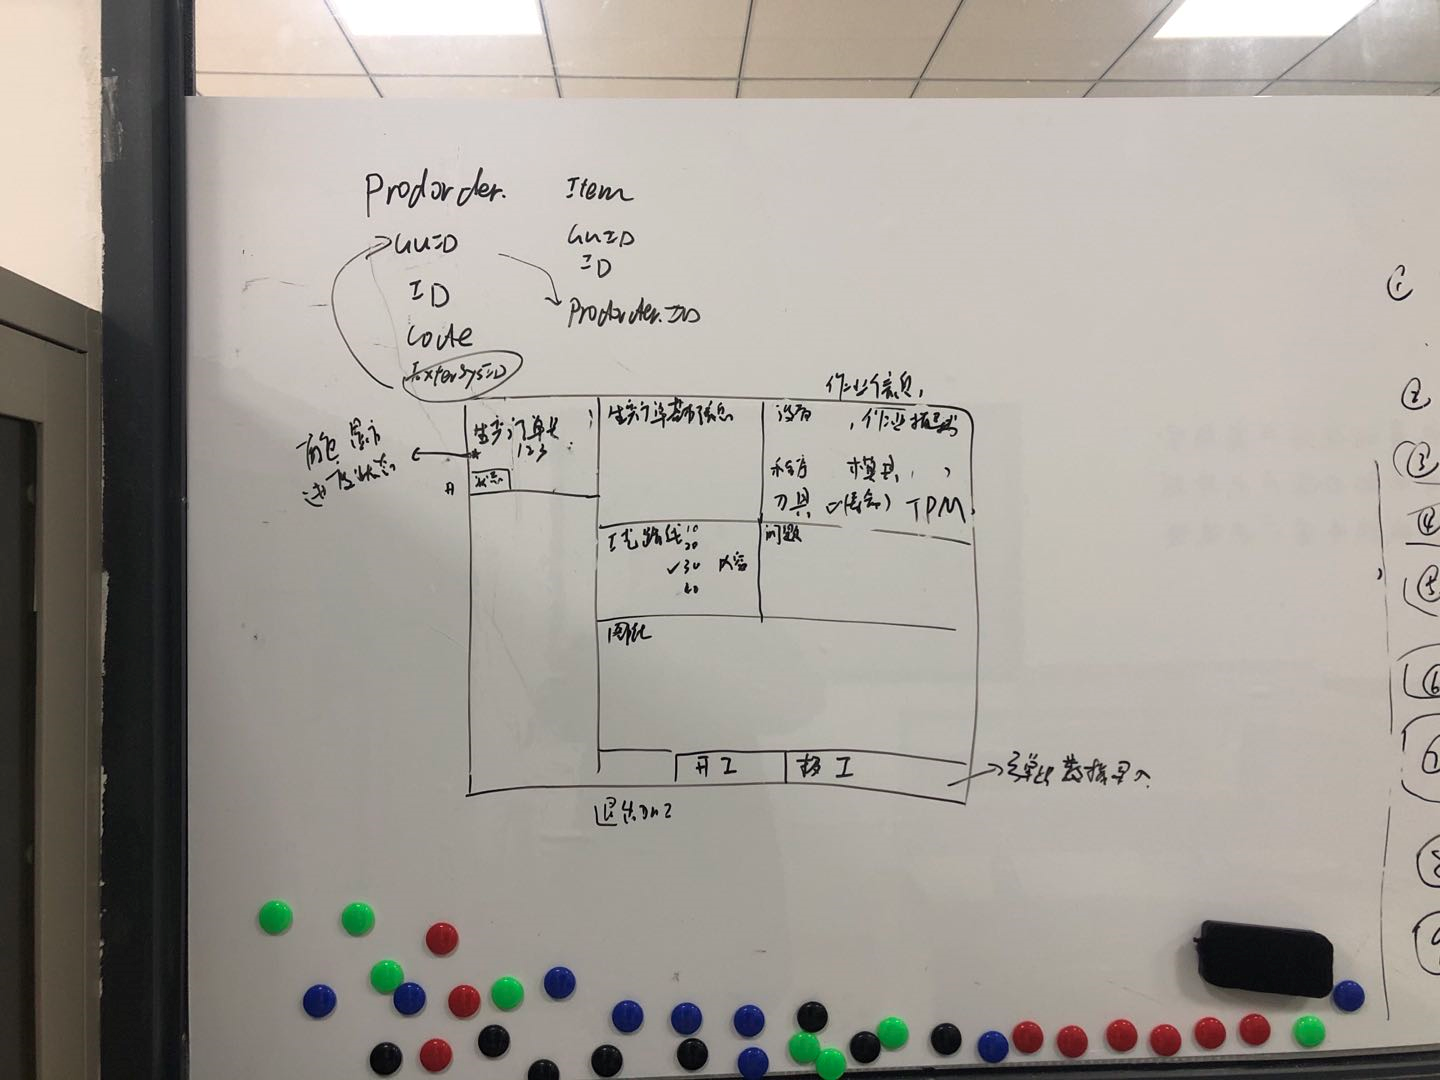 Prodorder.
GUID
ID
Code
ExterSysID
Item
GUID
ID
Prodorder.ID
作业信息,
颜色显示
进度状态
生产订单号
123
状态
生产订单基本信息
设备 , 作业指导书
程序 模具, ,
刀具 TPM
工艺路线 10
20
✓30 内容
40
问题
图纸
开工
报工
弹出数据录入
①
②
③
④
⑤
⑥
⑦
⑧
⑨